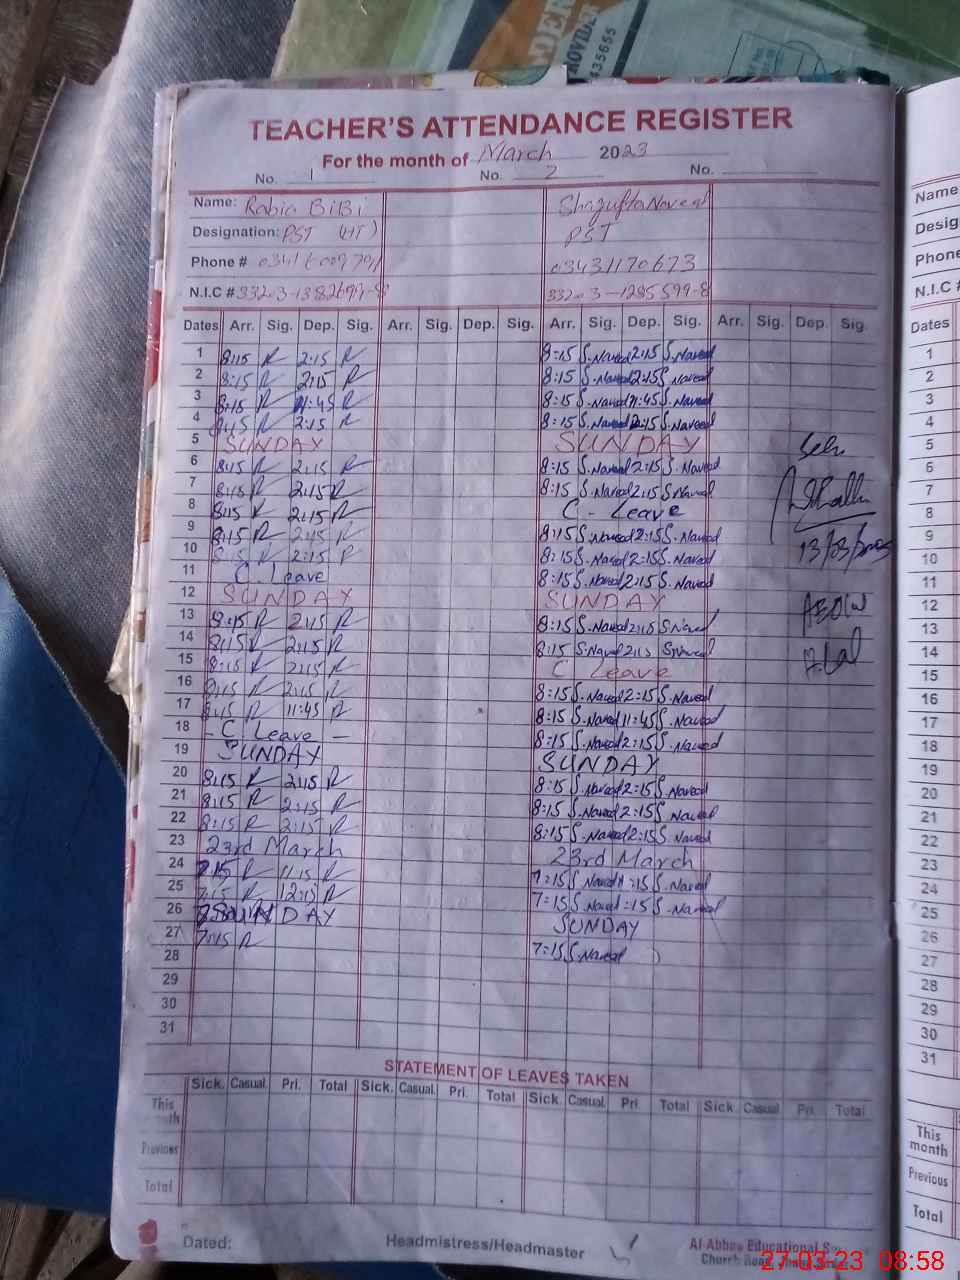 TEACHER'S ATTENDANCE REGISTER
For the month of March 2023
No. 1 No. 2 No.
Name: Rabia BiBi Shagufta Naveed
Designation: PST (HT) PST
Phone # 03431170673
N.I.C # 33203-1382699-8 33203-1285599-8
Dates Arr. Sig. Dep. Sig. Arr. Sig. Dep. Sig. Arr. Sig. Dep. Sig. Arr. Sig. Dep. Sig.
1 8:15 R 2:15 R 8:15 S.Naveed 2:15 S.Naveed
2 8:15 R 2:15 R 8:15 S.Naveed 2:15 S.Naveed
3 8:15 R 11:45 R 8:15 S.Naveed 11:45 S.Naveed
4 8:15 R 2:15 R 8:15 S.Naveed 2:15 S.Naveed
5 SUNDAY SUNDAY
6 8:15 R 2:15 R 8:15 S.Naveed 2:15 S.Naveed
7 8:15 R 2:15 R 8:15 S.Naveed 2:15 S.Naveed
8 8:15 R 2:15 R C - Leave
9 8:15 R 2:15 R 8:15 S.Naveed 2:15 S.Naveed
10 8:15 R 2:15 R 8:15 S.Naveed 2:15 S.Naveed
11 C. Leave 8:15 S.Naveed 2:15 S.Naveed
12 SUNDAY SUNDAY
13 8:15 R 2:15 R 8:15 S.Naveed 2:15 S.Naveed
14 8:15 R 2:15 R 8:15 S.Naveed 2:15 S.Naveed
15 8:15 R 2:15 R C Leave
16 8:15 R 2:15 R 8:15 S.Naveed 2:15 S.Naveed
17 8:15 R 11:45 R 8:15 S.Naveed 11:45 S.Naveed
18 - C. Leave - 8:15 S.Naveed 2:15 S.Naveed
19 SUNDAY SUNDAY
20 8:15 R 2:15 R 8:15 S.Naveed 2:15 S.Naveed
21 8:15 R 2:15 R 8:15 S.Naveed 2:15 S.Naveed
22 8:15 R 2:15 R 8:15 S.Naveed 2:15 S.Naveed
23 23rd March 23rd March
24 7:15 R 1:15 R 7:15 S.Naveed 1:15 S.Naveed
25 7:15 R 12:15 R 7:15 S.Naveed :15 S.Naveed
26 SUNDAY SUNDAY
27 7:15 R 7:15 S.Naveed
28
29
30
31
STATEMENT OF LEAVES TAKEN
Sick. Casual. Pri. Total Sick. Casual. Pri. Total Sick. Casual. Pri. Total Sick. Casual Pri. Total
This month
Previous
Total
Dated: Headmistress/Headmaster
Al-Abbas Educational
Church Road
Name
Desig
Phone
N.I.C #
Dates
1
2
3
4
5
6
7
8
9
10
11
12
13
14
15
16
17
18
19
20
21
22
23
24
25
26
27
28
29
30
31
This month
Previous
Total
435655
27-03-23 08:58